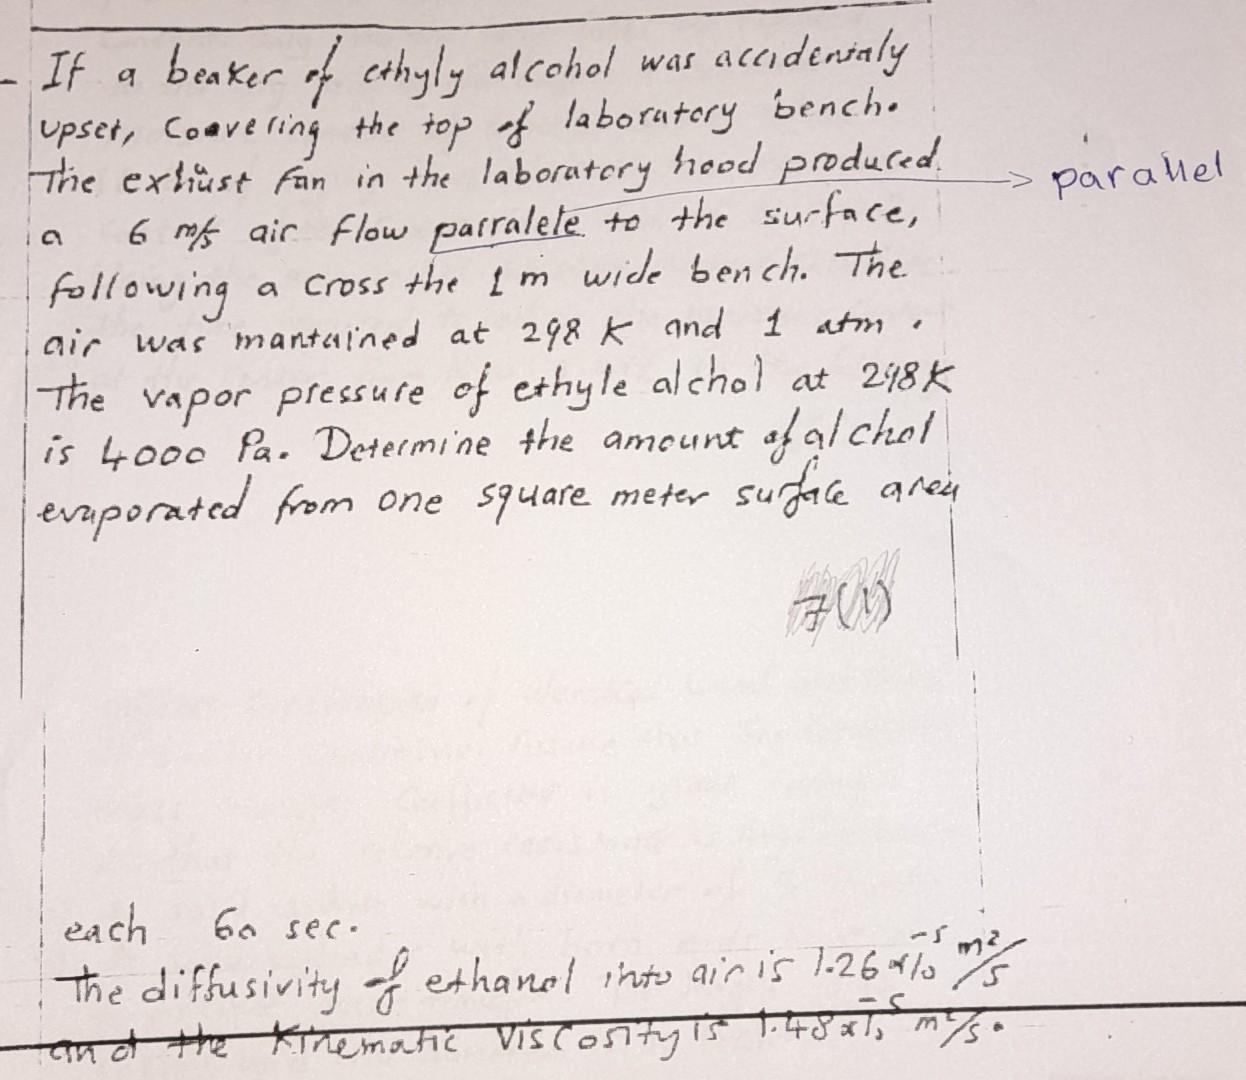 - If a beaker of ethyly alcohol was accidentaly
upset, Coavering the top of laboratory bench.
The exhüst fan in the laboratory hood produced
a 6 m/s air flow parralele to the surface,
parallel
following a cross the 1 m wide bench. The
air was mantained at 298 K and 1 atm.
The vapor pressure of ethyle alchol at 298K
is 4000 Pa. Determine the amount of alchol
evaporated from one square meter surface area
7(1)
each 60 sec.
The diffusivity of ethanol into air is 1.26*10⁻⁵ m²/s
and the Kinematic Viscosity is 1.48x10⁻⁵ m²/s.